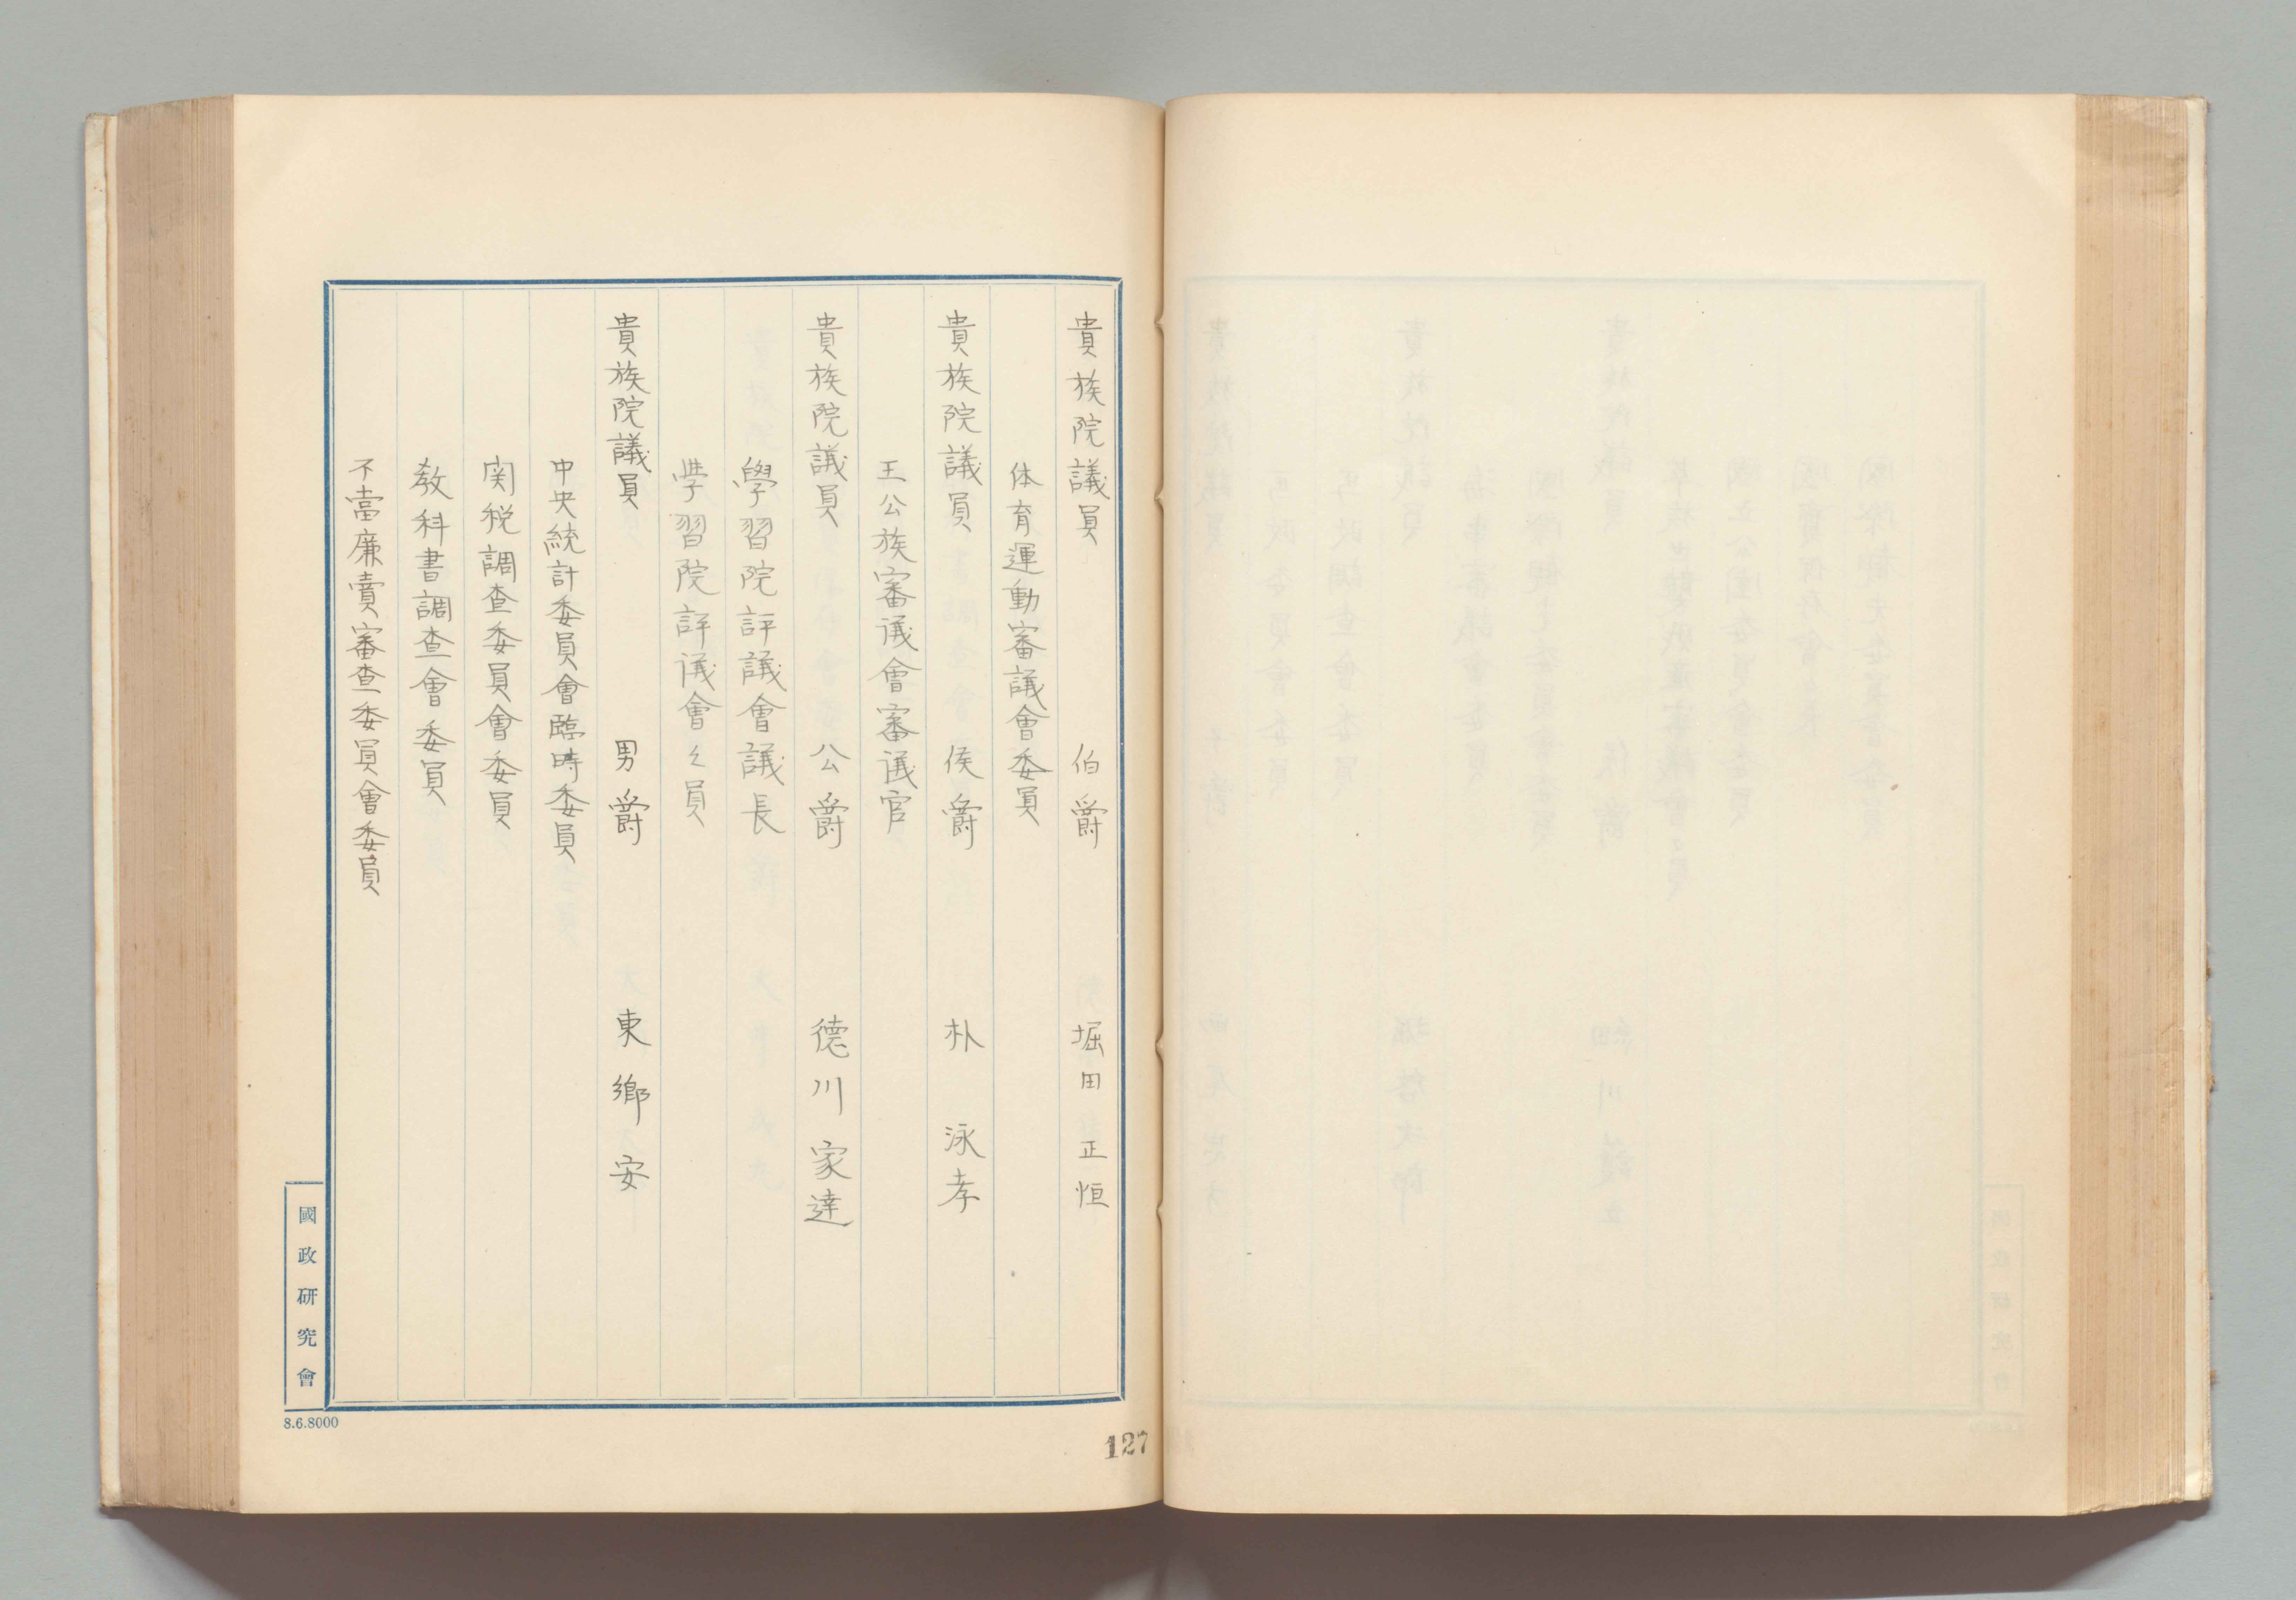 貴族院議員　伯爵　堀田正恒
体育運動審議會委員
貴族院議員　侯爵　朴泳孝
王公族審議會審議官
貴族院議員　公爵　德川家達
學習院評議會議長
学習院評議會々員
貴族院議員　男爵　東鄉安
中央統計委員會臨時委員
関税調査委員會委員
教科書調査會委員
不當廉賣審査委員會委員
國政研究會
8.6.8000
127